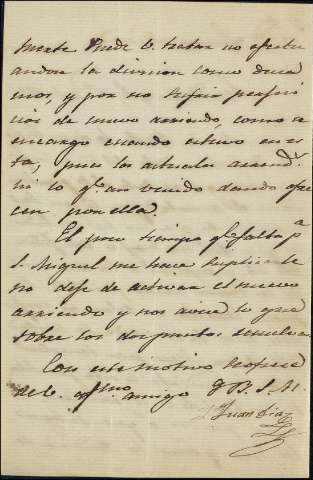 mente Puede V. tratar no efectu
andose la division como dicen
mos, y por no sufrir perjui
cios de nuevo arriendo, como se
encargo cuando estuvo en es
ta, pues los actuales arrend.s
ni lo q.e an venido dando ofre
cen por ella.
El poco tiempo q.e falta p.a
S. Miguel me hace suplicarle
no deje de activar el nuevo
arriendo y nos avise lo que
sobre los dos puntos resuelva.
Con este motivo se ofrece
de V. af.tmo amigo Q B. S. M.
Juan Diaz